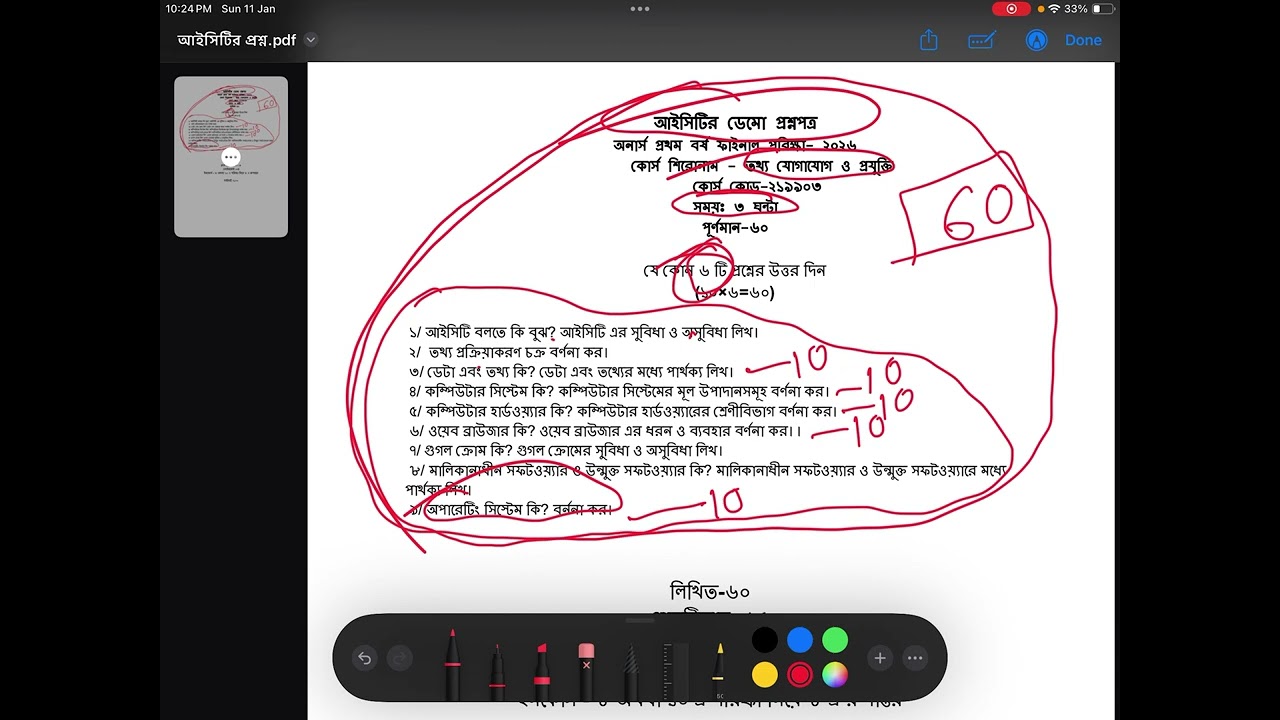 10:24 PM Sun 11 Jan
33%
আইসিটির প্রশ্ন.pdf
Done
আইসিটির ডেমো প্রশ্নপত্র
অনার্স প্রথম বর্ষ ফাইনাল পরিক্ষা- ২০২৬
কোর্স শিরোনাম - তথ্য যোগাযোগ ও প্রযুক্তি
কোর্স কোড-২১৯৯০৩
সময়ঃ ৩ ঘন্টা
60
পূর্ণমান-৬০
যে কোন ৬ টি প্রশ্নের উত্তর দিন
(১০×৬=৬০)
১/ আইসিটি বলতে কি বুঝ? আইসিটি এর সুবিধা ও অসুবিধা লিখ।
২/ তথ্য প্রক্রিয়াকরণ চক্র বর্ণনা কর।
৩/ ডেটা এবং তথ্য কি? ডেটা এবং তথ্যের মধ্যে পার্থক্য লিখ। 10
৪/ কম্পিউটার সিস্টেম কি? কম্পিউটার সিস্টেমের মূল উপাদানসমূহ বর্ণনা কর। 10
৫/ কম্পিউটার হার্ডওয়্যার কি? কম্পিউটার হার্ডওয়্যারের শ্রেণীবিভাগ বর্ণনা কর। 10
৬/ ওয়েব ব্রাউজার কি? ওয়েব ব্রাউজার এর ধরন ও ব্যবহার বর্ণনা কর।। 10
৭/ গুগল ক্রোম কি? গুগল ক্রোমের সুবিধা ও অসুবিধা লিখ।
৮/ মালিকানাধীন সফটওয়্যার ও উন্মুক্ত সফটওয়্যার কি? মালিকানাধীন সফটওয়্যার ও উন্মুক্ত সফটওয়্যারে মধ্যে
পার্থক্য লিখ।
৯/ অপারেটিং সিস্টেম কি? বর্ননা কর। 10
লিখিত-৬০